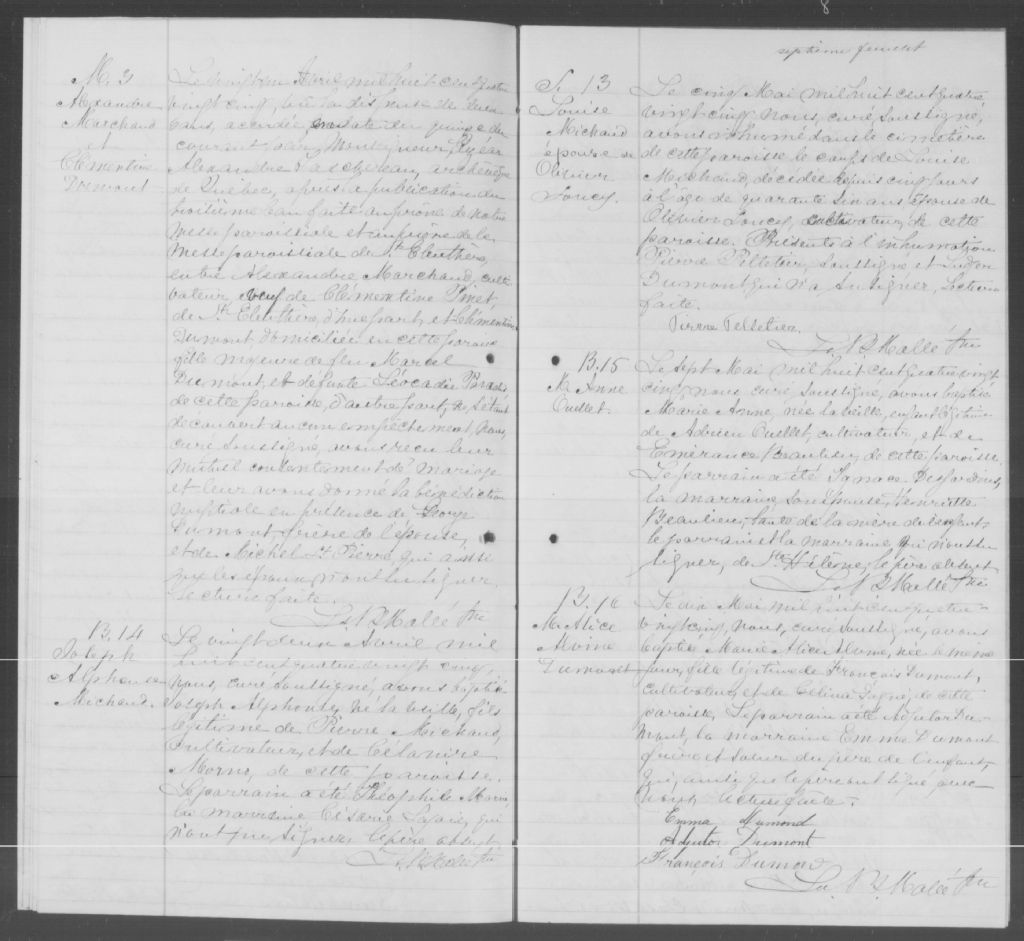 8
septième feuillet
M. 3
Alexandre
Marchand
et
Clémentine
Dumont
Le vingt un Avril mil huit cent quatre
vingt cinq, vu la dispense de deux
bans, accordée en date du quinze du
courant par Monseigneur, Elzéar
Alexandre Taschereau, archévêque
de Québec, après la publication du
troisième ban faite au prône de notre
messe paroissiale et au prône de la
messe paroissiale de St. Eleuthère,
entre Alexandre Marchand, culti
vateur, veuf de Clémentine
de St. Eleuthère, d'une part, et Clémentine
Dumont, domiciliée en cette paroisse
fille majeure de feu Marcel
Dumont, et défunte Léocadie
de cette paroisse, d'autre part, ne s'étant
découvert aucun empêchement, Nous,
curé soussigné, avons reçu leur
mutuel consentement de mariage
et leur avons donné la bénédiction
nuptiale en présence de George
Dumont, frère de l'épouse,
et de Michel St. Pierre, qui ainsi
que les époux n'ont su signer.
Lecture faite.
Ls. N. Mallé Ptre
B. 14
Joseph
Alphonse
Michaud.
Le vingt deux Avril mil
huit cent quatre vingt cinq,
nous, curé soussigné, avons baptisé
Joseph Alphonse, né la veille, fils
légitime de Pierre Michaud,
cultivateur, et de Célanire
de cette paroisse.
Le parrain a été Théophile
la marraine Césarie qui
n'ont pu signer, le père absent
Ptre
S. 13
Louise
Michaud
épouse de
Olivier
Soucy.
Le cinq Mai mil huit cent quatre
vingt cinq nous, curé soussigné,
avons inhumé dans le cimetière
de cette paroisse le corps de Louise
Michaud, décédée depuis cinq jours
à l'âge de quarante six ans épouse de
Olivier Soucy, cultivateur, de cette
paroisse. Présents à l'inhumation
Pierre Pelletier, soussigné et
Dumont qui n'a su signer, Lecture
faite.
Pierre Pelletier.
Ls. N. Mallé Ptre
B. 15
M. Anne
Ouellet.
Le sept Mai mil huit cent quatre vingt
cinq nous curé soussigné, avons baptisé
Marie Anne, née la veille, enfant légitime
de Adrien Ouellet, cultivateur, et de
Emérance Beaulieu, de cette paroisse.
Le parrain a été Ignace Desjardins,
la marraine, son épouse, Henriette
Beaulieu, tante de la mère de l'enfant,
le parrain et la marraine qui n'ont su
signer, de Ste. Hélène, le père absent
Ls. N. Mallé Ptre
B. 16
M. Alice
Alvine
Dumont
Le dix Mai mil huit cent quatre-
vingt cinq, nous, curé soussigné, avons
baptisé Marie Alice Alvine, née le même
jour, fille légitime de François Dumont,
cultivateur, et de Célina de cette
paroisse. Le parrain a été Adjutor Du-
mont, la marraine Emma Dumont
frère et soeur du père de l'enfant,
qui, ainsi que le père ont signé avec
nous. Lecture faite.
Emma Dumond
Adjutor Dumont
François Dumond
Ls. N. Mallé Ptre